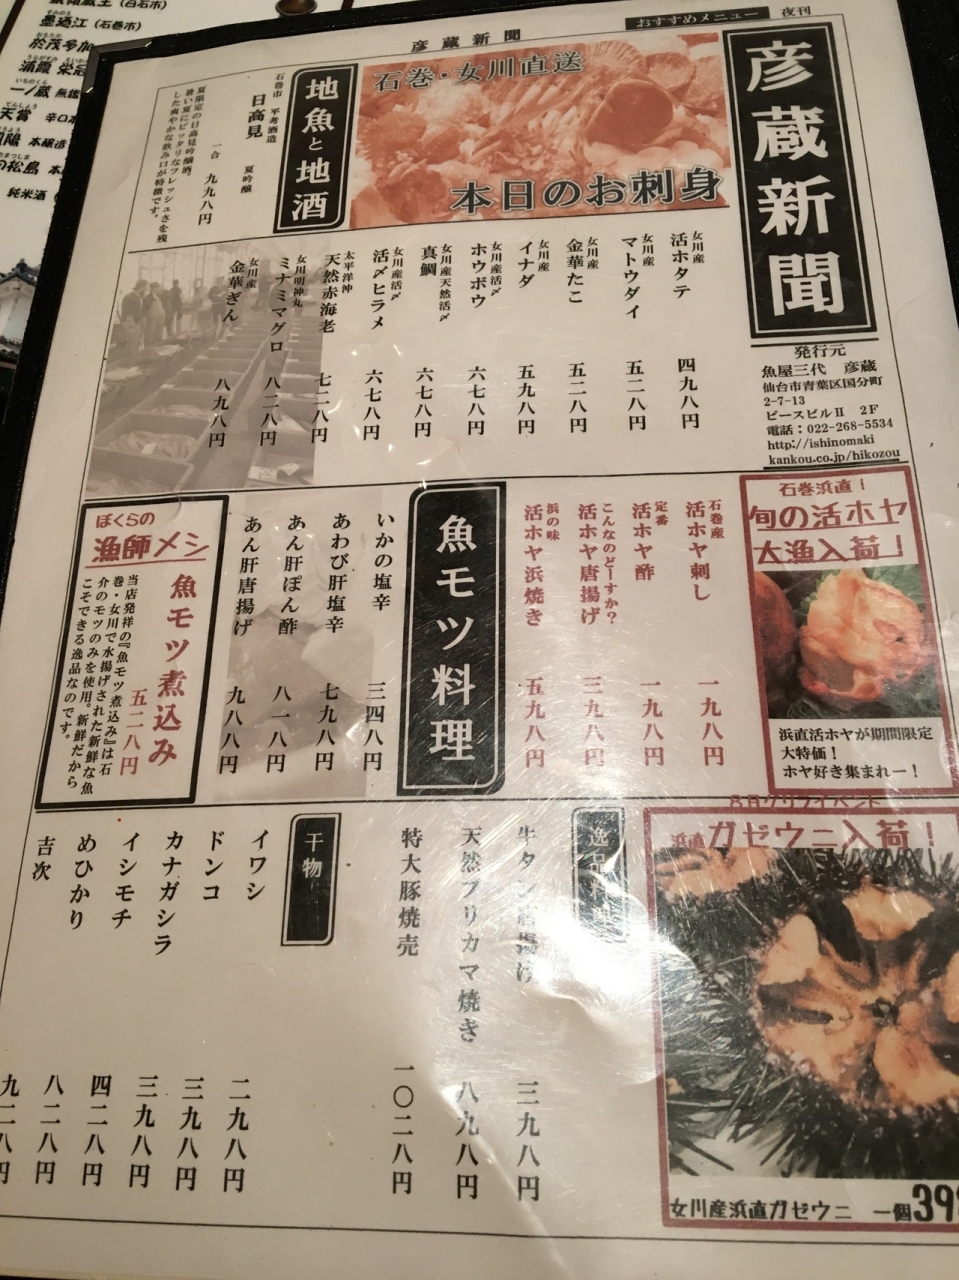 彦蔵新聞
おすすめメニュー
夜刊
彦蔵新聞
発行元
魚屋三代 彦蔵
仙台市青葉区国分町
2-7-13
ピースビルⅡ 2F
電話：022-268-5534
http://ishinomaki
kankou.co.jp/hikozou
石巻・女川直送
本日のお刺身
女川産
活ホタテ 四九八円
女川産
マトウダイ 五二八円
女川産
金華たこ 五二八円
女川産
イナダ 五九八円
女川産活〆
ホウボウ 六七八円
女川産天然活〆
真鯛 六七八円
女川産活〆
活〆ヒラメ 六七八円
太平洋沖
天然赤海老 七二八円
女川明神丸
ミナミマグロ 八二八円
女川産
金華ぎん 八九八円
地魚と地酒
石巻市 平孝酒造
日高見 夏吟醸
一合 九九八円
夏限定の日高見吟醸酒。
暑い夏にピッタリなフレッシュさを残
した爽やかな飲み口が特徴です。
石巻浜直！
旬の活ホヤ
大漁入荷！
浜直活ホヤが期間限定
大特価！
ホヤ好き集まれー！
石巻産
活ホヤ刺し 一九八円
定番
活ホヤ酢 一九八円
こんなのどーすか？
活ホヤ唐揚げ 三九八円
浜の味
活ホヤ浜焼き 五九八円
魚モツ料理
いかの塩辛 三四八円
あわび肝塩辛 七九八円
あん肝ぽん酢 八一八円
あん肝唐揚げ 九八八円
ぼくらの
漁師メシ
魚モツ煮込み
五二八円
当店発祥の『魚モツ煮込み』は石
巻・女川で水揚げされた新鮮な魚
介のモツのみを使用。新鮮だから
こそできる逸品なのです。
浜直ガゼウニ入荷！
女川産浜直ガゼウニ 一個39
逸品料理
牛タン唐揚げ 三九八円
天然ブリカマ焼き 八九八円
特大豚焼売 一〇二八円
干物
イワシ 二九八円
ドンコ 三九八円
カナガシラ 三九八円
イシモチ 四二八円
めひかり 八二八円
吉次 九二八円
(白石市)
墨廼江 (石巻市)
於茂多加
浦霞
一ノ蔵 無鑑
天賞 辛口本
本醸造
松島
純米酒